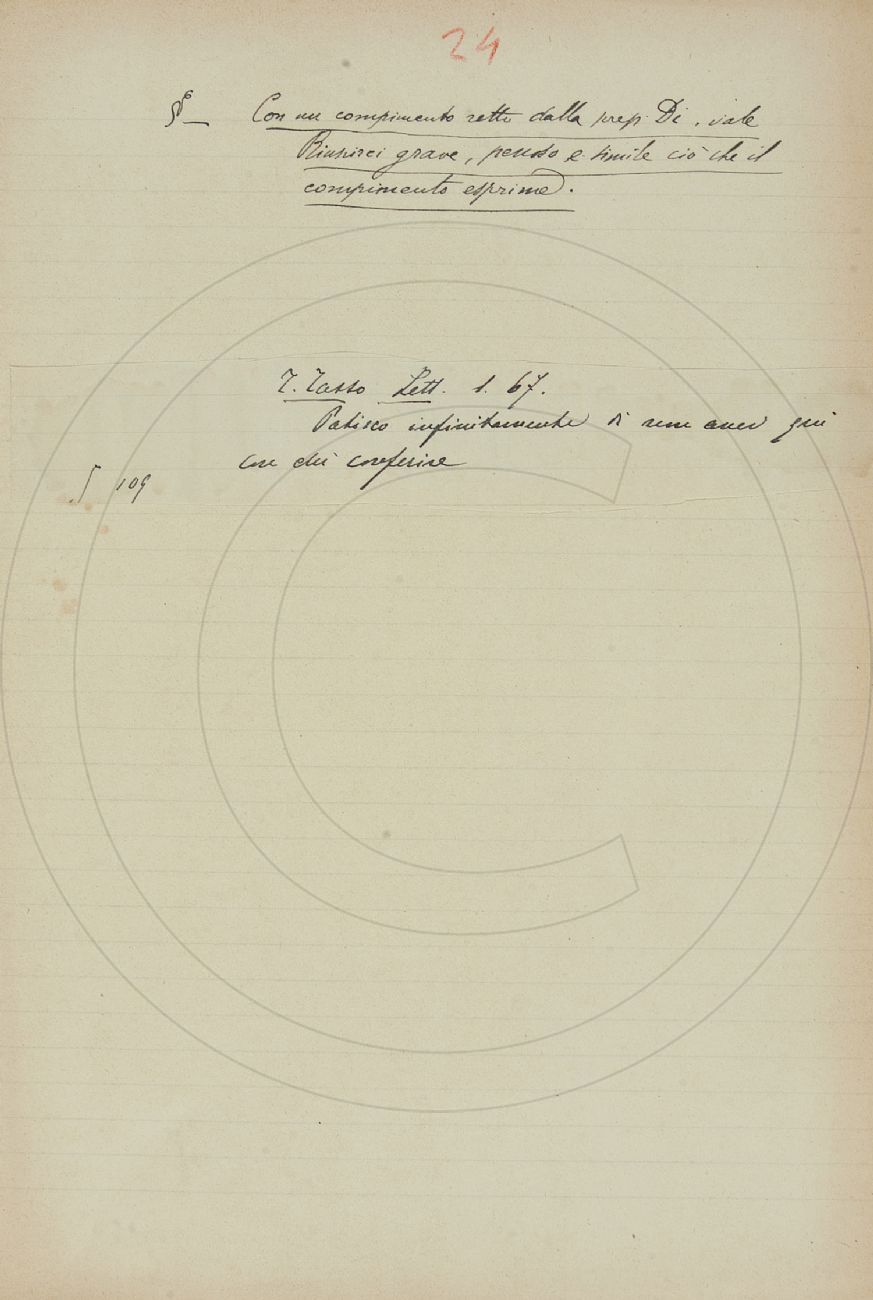 24
§ — Con un compimento retto dalla prep. Di, vale
Riuscirci grave, penoso e simile ciò che il
compimento esprime.
T. Tasso Lett. 1. 67.
Patisco infinitamente di non aver qui
con chi conferire
109